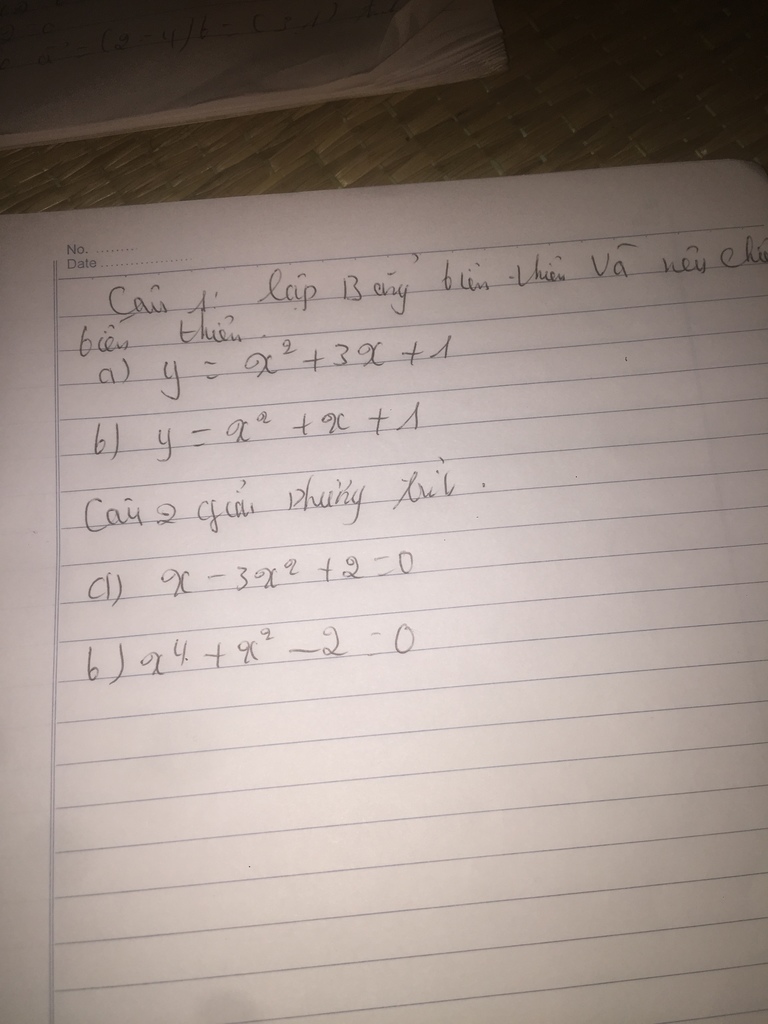 a = (2-4)b = (
No. .........
Date ....................
Câu 1: lập Bảng biến thiên và nêu chiề
biến thiên.
a) y = x² + 3x + 1
b) y = x² + x + 1
Câu 2 giải phương trì .
a) x - 3x² + 2 = 0
b) x⁴ + x² - 2 = 0